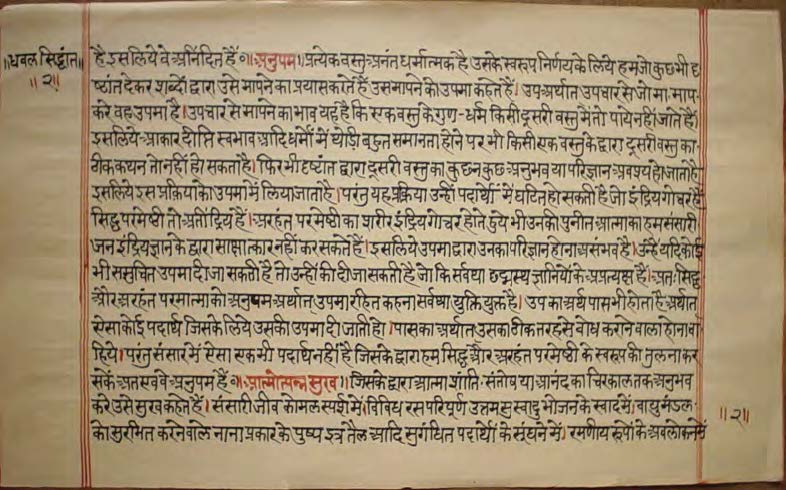 ॥धवल सिद्धांत॥
॥२॥
है इसलिये वे अनिंदित हैं ०॥अनुपम॥ प्रत्येक वस्तु अनंत धर्मात्मक है उसके स्वरूप निर्णय के लिये हम जो कुछ भी दृ
ष्टांत देकर शब्दों द्वारा उसे मापने का प्रयास करते हैं उस मापने को उपमा कहते हैं। उप अर्थात उपचार से जो मा-माप-
करे वह उपमा है। उपचार से मापने का भाव यह है कि एक वस्तु के गुण-धर्म किसी दूसरी वस्तु में तो पाये नहीं जाते हैं।
इसलिये आकार दीप्ति स्वभाव आदि धर्मों में थोड़ी बहुत समानता होने पर भी किसी एक वस्तु के द्वारा दूसरी वस्तु का
ठीक कथन तो नहीं हो सकता है। फिर भी दृष्टांत द्वारा दूसरी वस्तु का कुछ न कुछ अनुभव या परिज्ञान अवश्य हो जाता है।
इसलिये इस प्रक्रिया को उपमा में लिया जाता है। परंतु यह प्रक्रिया उन्हीं पदार्थों में घटित हो सकती है जो इंद्रियगोचर हैं
सिद्ध परमेष्ठी तो अतींद्रिय हैं। अरहंत परमेष्ठी का शरीर इंद्रियगोचर होते हुये भी उनकी पुनीत आत्मा का हम संसारी
जन इंद्रियज्ञान के द्वारा साक्षात्कार नहीं कर सकते हैं। इसलिये उपमा द्वारा उनका परिज्ञान होना असंभव है। उन्हें यदि कोई
भी समुचित उपमा दी जा सकती है तो उन्हीं की दी जा सकती है जो कि सर्वथा छद्मस्थ ज्ञानियों के अप्रत्यक्ष हैं। अतः सिद्ध
और अरहंत परमात्मा को अनुपम अर्थात् उपमा रहित कहना सर्वथा युक्ति युक्त है। उप का अर्थ पास भी होता है अर्थात
ऐसा कोई पदार्थ जिसके लिये उसकी उपमा दी जाती हो। पास का अर्थात उसका ठीक तरह से बोध कराने वाला होना चा
हिये। परंतु संसार में ऐसा एक भी पदार्थ नहीं है जिसके द्वारा हम सिद्ध और अरहंत परमेष्ठी के स्वरूप की तुलना कर
सकें अतएव वे अनुपम हैं ०॥आत्मोत्पन्न सुख॥ जिसके द्वारा आत्मा शांति-संतोष या आनंद का चिरकाल तक अनुभव
करे उसे सुख कहते हैं। संसारी जीव कोमल स्पर्श में। विविध रस परिपूर्ण उत्तम सुस्वादु भोजन के स्वाद में। वायुमंडल-
को सुरभित करने वाले नाना प्रकार के पुष्प इत्र तैल आदि सुगंधित पदार्थों के सूंघने में। रमणीय रूपों के अवलोकन में
॥२॥